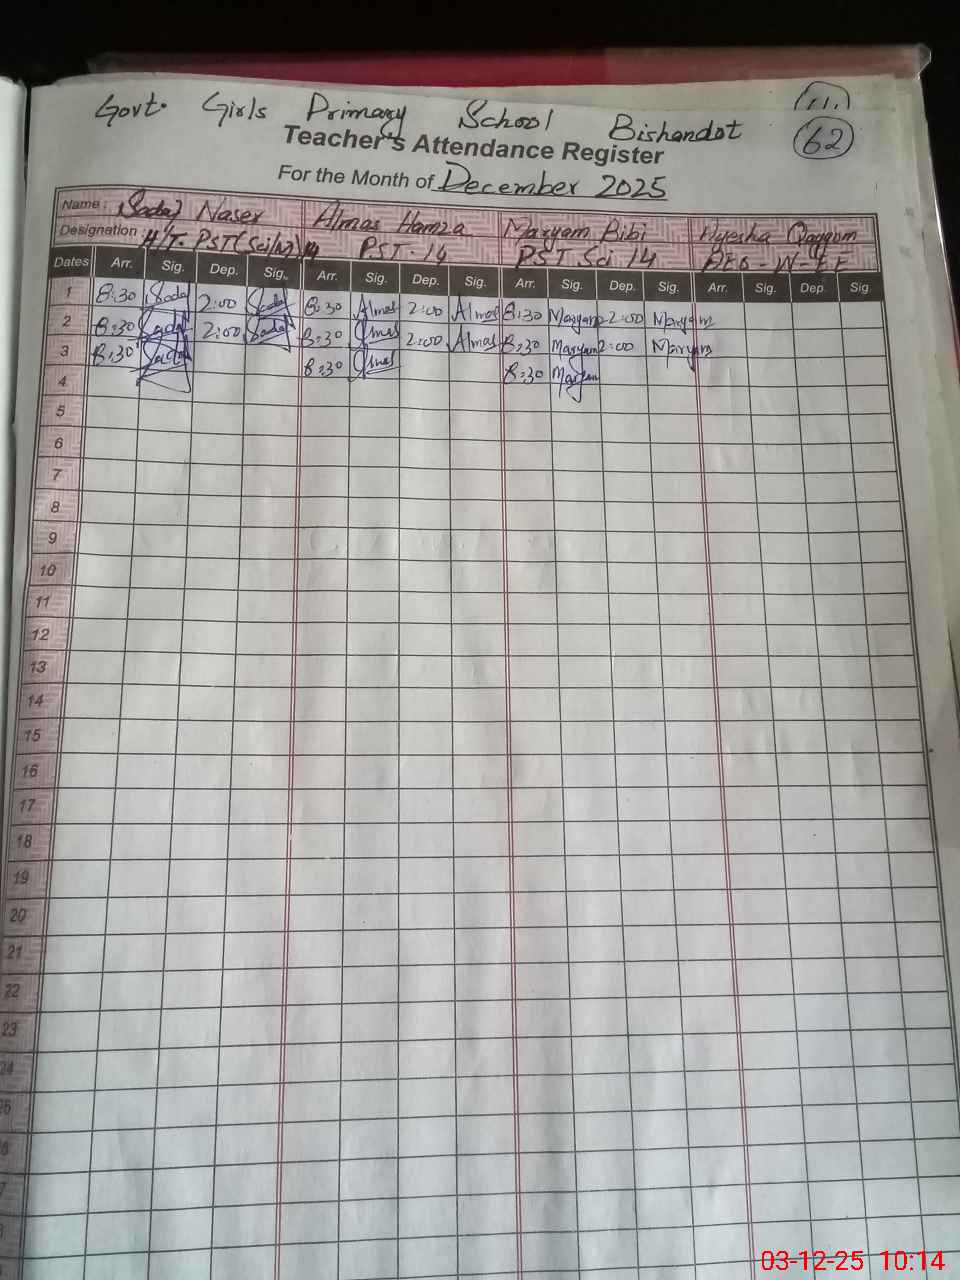 Govt. Girls Primary School Bishandot
111,
62
Teacher's Attendance Register
For the Month of December 2025
Name : Sadaf Naser Almas Hamza Maryam Bibi Ayesha Qayyom
Designation : H/T. PST(Sci/M) 14 PST-14 PST Sci 14 AEO-W-EE
Dates Arr. Sig. Dep. Sig. Arr. Sig. Dep. Sig. Arr. Sig. Dep. Sig. Arr. Sig. Dep. Sig.
1 8:30 Sadaf 2:00 Sadaf 8:30 Almas 2:00 Almas 8:30 Maryam 2:00 Maryam
2 8:30 Sadaf 2:00 Sadaf 8:30 Almas 2:00 Almas 8:30 Maryam 2:00 Maryam
3 8:30 Sadaf 8:30 Almas 8:30 Maryam
4
5
6
7
8
9
10
11
12
13
14
15
16
17
18
19
20
21
22
23
24
03-12-25 10:14